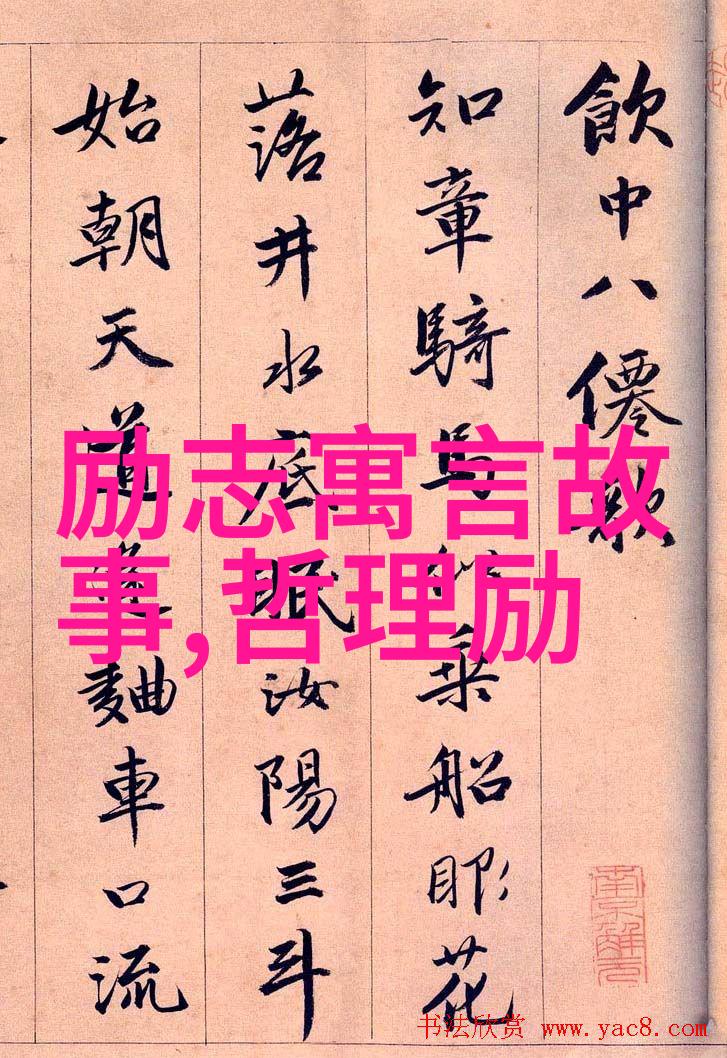 飲中八僊歌
知章騎馬似乘船眼花
落井水底眠汝陽三斗
始朝天道逢麯車口流
励志寓言故
事,哲理励
南京解元
书法欣赏 www.yac8.com